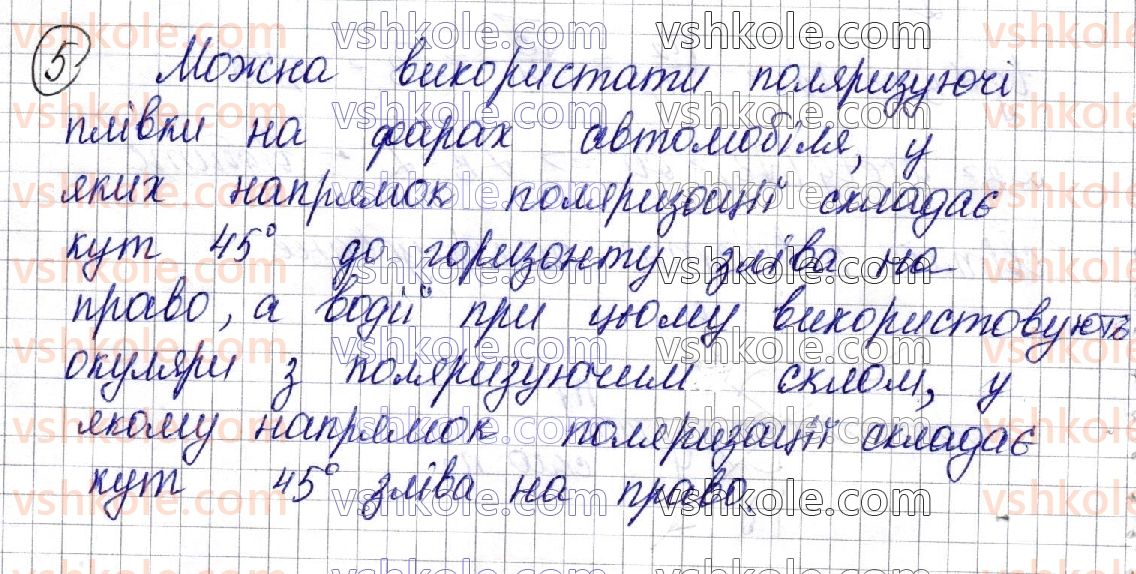 5 Можна використати поляризуючі
плівки на фарах автомобіля, у
яких напрямок поляризації складає
кут 45° до горизонту зліва на
право, а водії при цьому використовують
окуляри з поляризуючим склом, у
якому напрямок поляризації складає
кут 45° зліва на право.